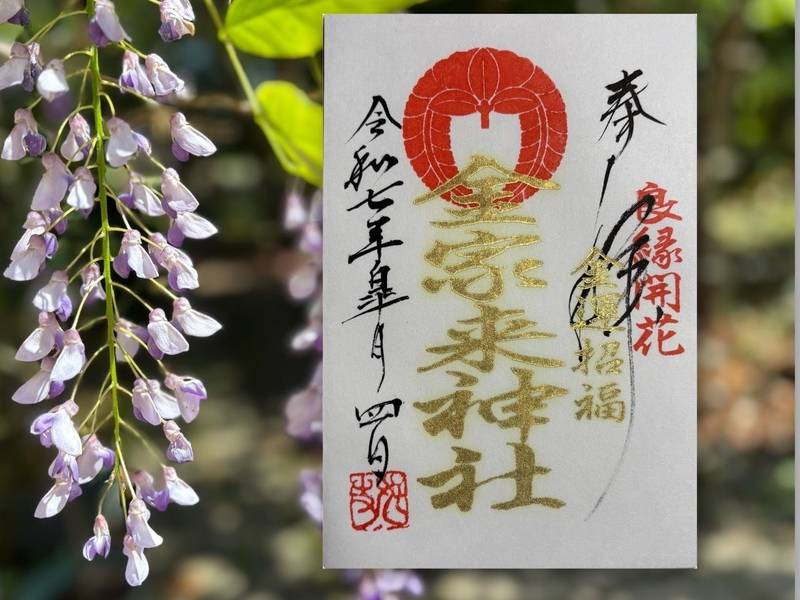 奉拝
良縁開花
金運招福
金家来神社
令和七年皐月四日